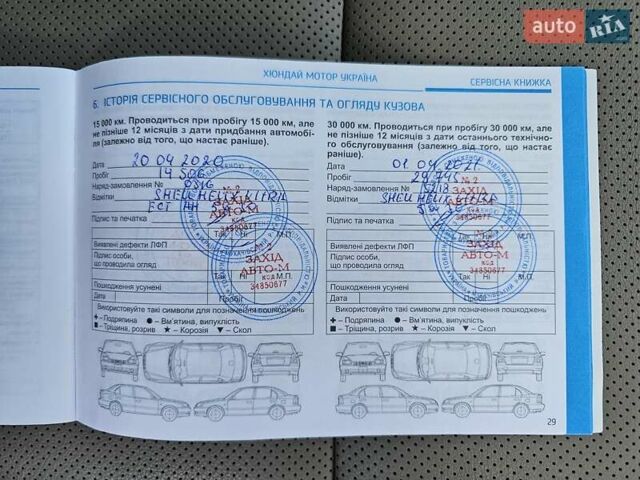 auto RIA
ХЮНДАЙ МОТОР УКРАЇНА
СЕРВІСНА КНИЖКА
6. ІСТОРІЯ СЕРВІСНОГО ОБСЛУГОВУВАННЯ ТА ОГЛЯДУ КУЗОВА
15 000 км. Проводиться при пробігу 15 000 км, але
не пізніше 12 місяців з дати придбання автомобі-
ля (залежно від того, що настає раніше).
Дата 20 04 2020
Пробіг 14 506
Наряд-замовлення № 0316
Відмітки SHELL HELIX ULTRA
ECT
Підпис та печатка
Так Ні М.П.
Виявлені дефекти ЛФП
Підпис особи,
що проводила огляд
Так Ні М.П.
Пошкодження усунені
Дата Пробіг
Використовуйте такі символи для позначення пошкоджень
+ – Подряпина ● – Вм'ятина, випуклість
■ – Тріщина, розрив ★ – Корозія ▼ – Скол
№ 2
ЗАХІД
АВТО-М
КОД
34850677
2
ЗАХІД
АВТО-М
КОД
34850677
30 000 км. Проводиться при пробігу 30 000 км, але
не пізніше 12 місяців з дати останнього технічно-
го обслуговування (залежно від того, що настає
раніше).
Дата 01 04 2021
Пробіг 29 745
Наряд-замовлення №
Відмітки SHELL HELIX ULTRA
Підпис та печатка
Так Ні М.П.
Виявлені дефекти ЛФП
Підпис особи,
що проводила огляд
Так Ні М.П.
Пошкодження усунені
Дата Пробіг
Використовуйте такі символи для позначення пошкоджень
+ – Подряпина ● – Вм'ятина, випуклість
■ – Тріщина, розрив ★ – Корозія ▼ – Скол
№ 2
ЗАХІД
АВТО-М
КОД
34850677
№ 2
ЗАХІД
АВТО-М
КОД
34850677
29